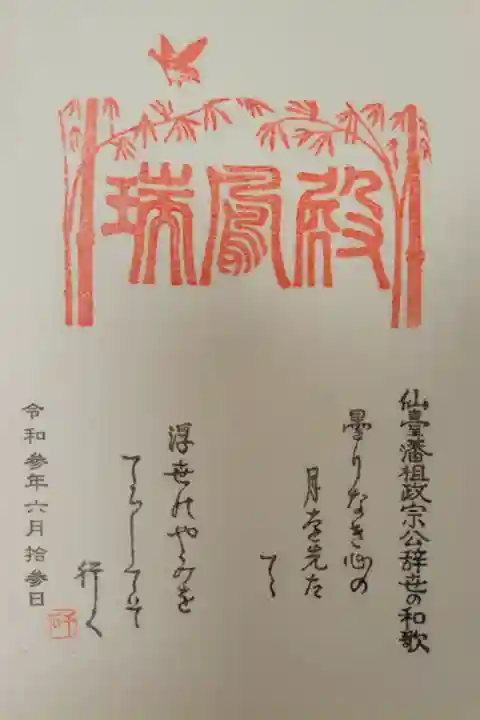 瑞鳳殿
仙臺藩祖政宗公辞世の和歌
曇りなき心の
月を先たて
て
浮世のやみを
てらしてそ
行く
令和参年六月拾参日